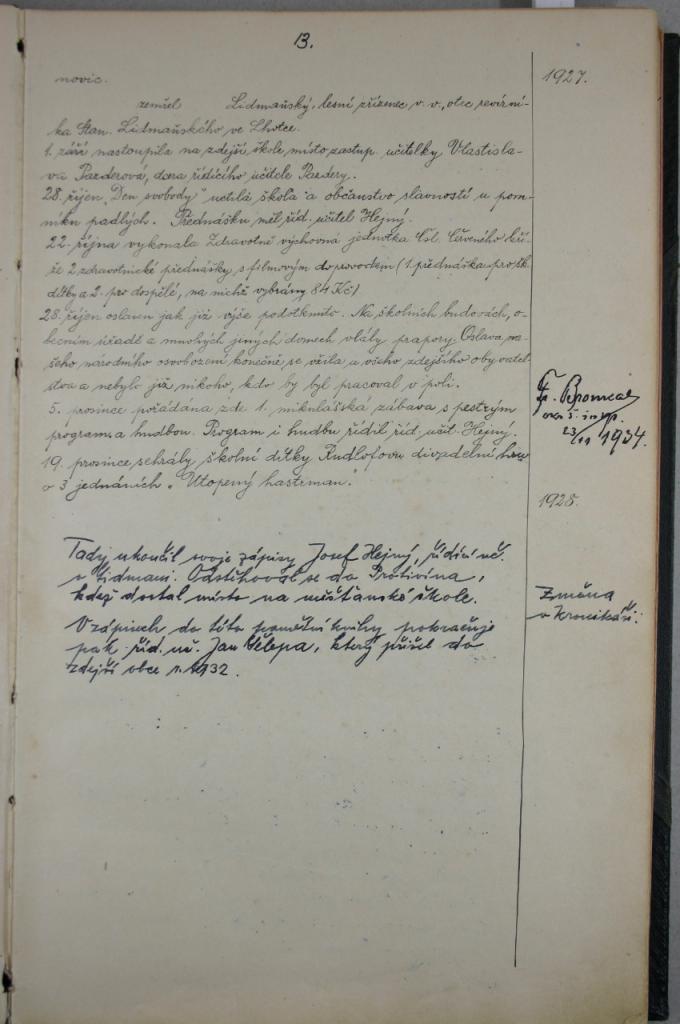 13.
novic.
1927.
zemřel Lidmaňský, lesní zřízenec v. v., otec revírní-
ka Stan. Lidmaňského ve Lhotce.
1. září nastoupila na zdejší škole místo zastup. učitelky Vlastisla-
va Pazderová, dcera řídícího učitele Pazdery.
28. říjen „Den svobody" uctila škola a občanstvo slavností u pom-
níku padlých. Přednášku měl říd. učitel Hejný.
22. října vykonala Zdravotně výchovná jednotka Čsl. Červeného kří-
že 2 zdravotnické přednášky s filmovým doprovodem (1. přednáška pro šk.
dítky a 2. pro dospělé, na nichž vybrány 84 Kč)
28. říjen oslaven jak již výše podotknuto. Na školních budovách, o-
becním úřadě a mnohých jiných domech vlály prapory. Oslava na-
šeho národního osvobození konečně se vžila u všeho zdejšího obyvatel-
stva a nebylo již nikoho, kdo by byl pracoval v poli.
5. prosince pořádána zde 1. mikulášská zábava s pestrým
programem a hudbou. Program i hudbu řídil říd. učit. Hejný.
19. prosince sehrály školní dítky Rudlofovu divadelní hru
o 3 jednáních „Utopený hastrman."
Fr.
23/11 1934.
1928.
Tady ukončil svoje zápisy Josef Hejný, řídící uč.
v Lidmani. Odstěhoval se do Protivína,
kdež dostal místo na měšťanské škole.
Změna
v kronikáři:
V zápisech do této pamětní knihy pokračuje
pak říd. uč. Jan Čělepa, který přišel do
zdejší obce r. 1932.